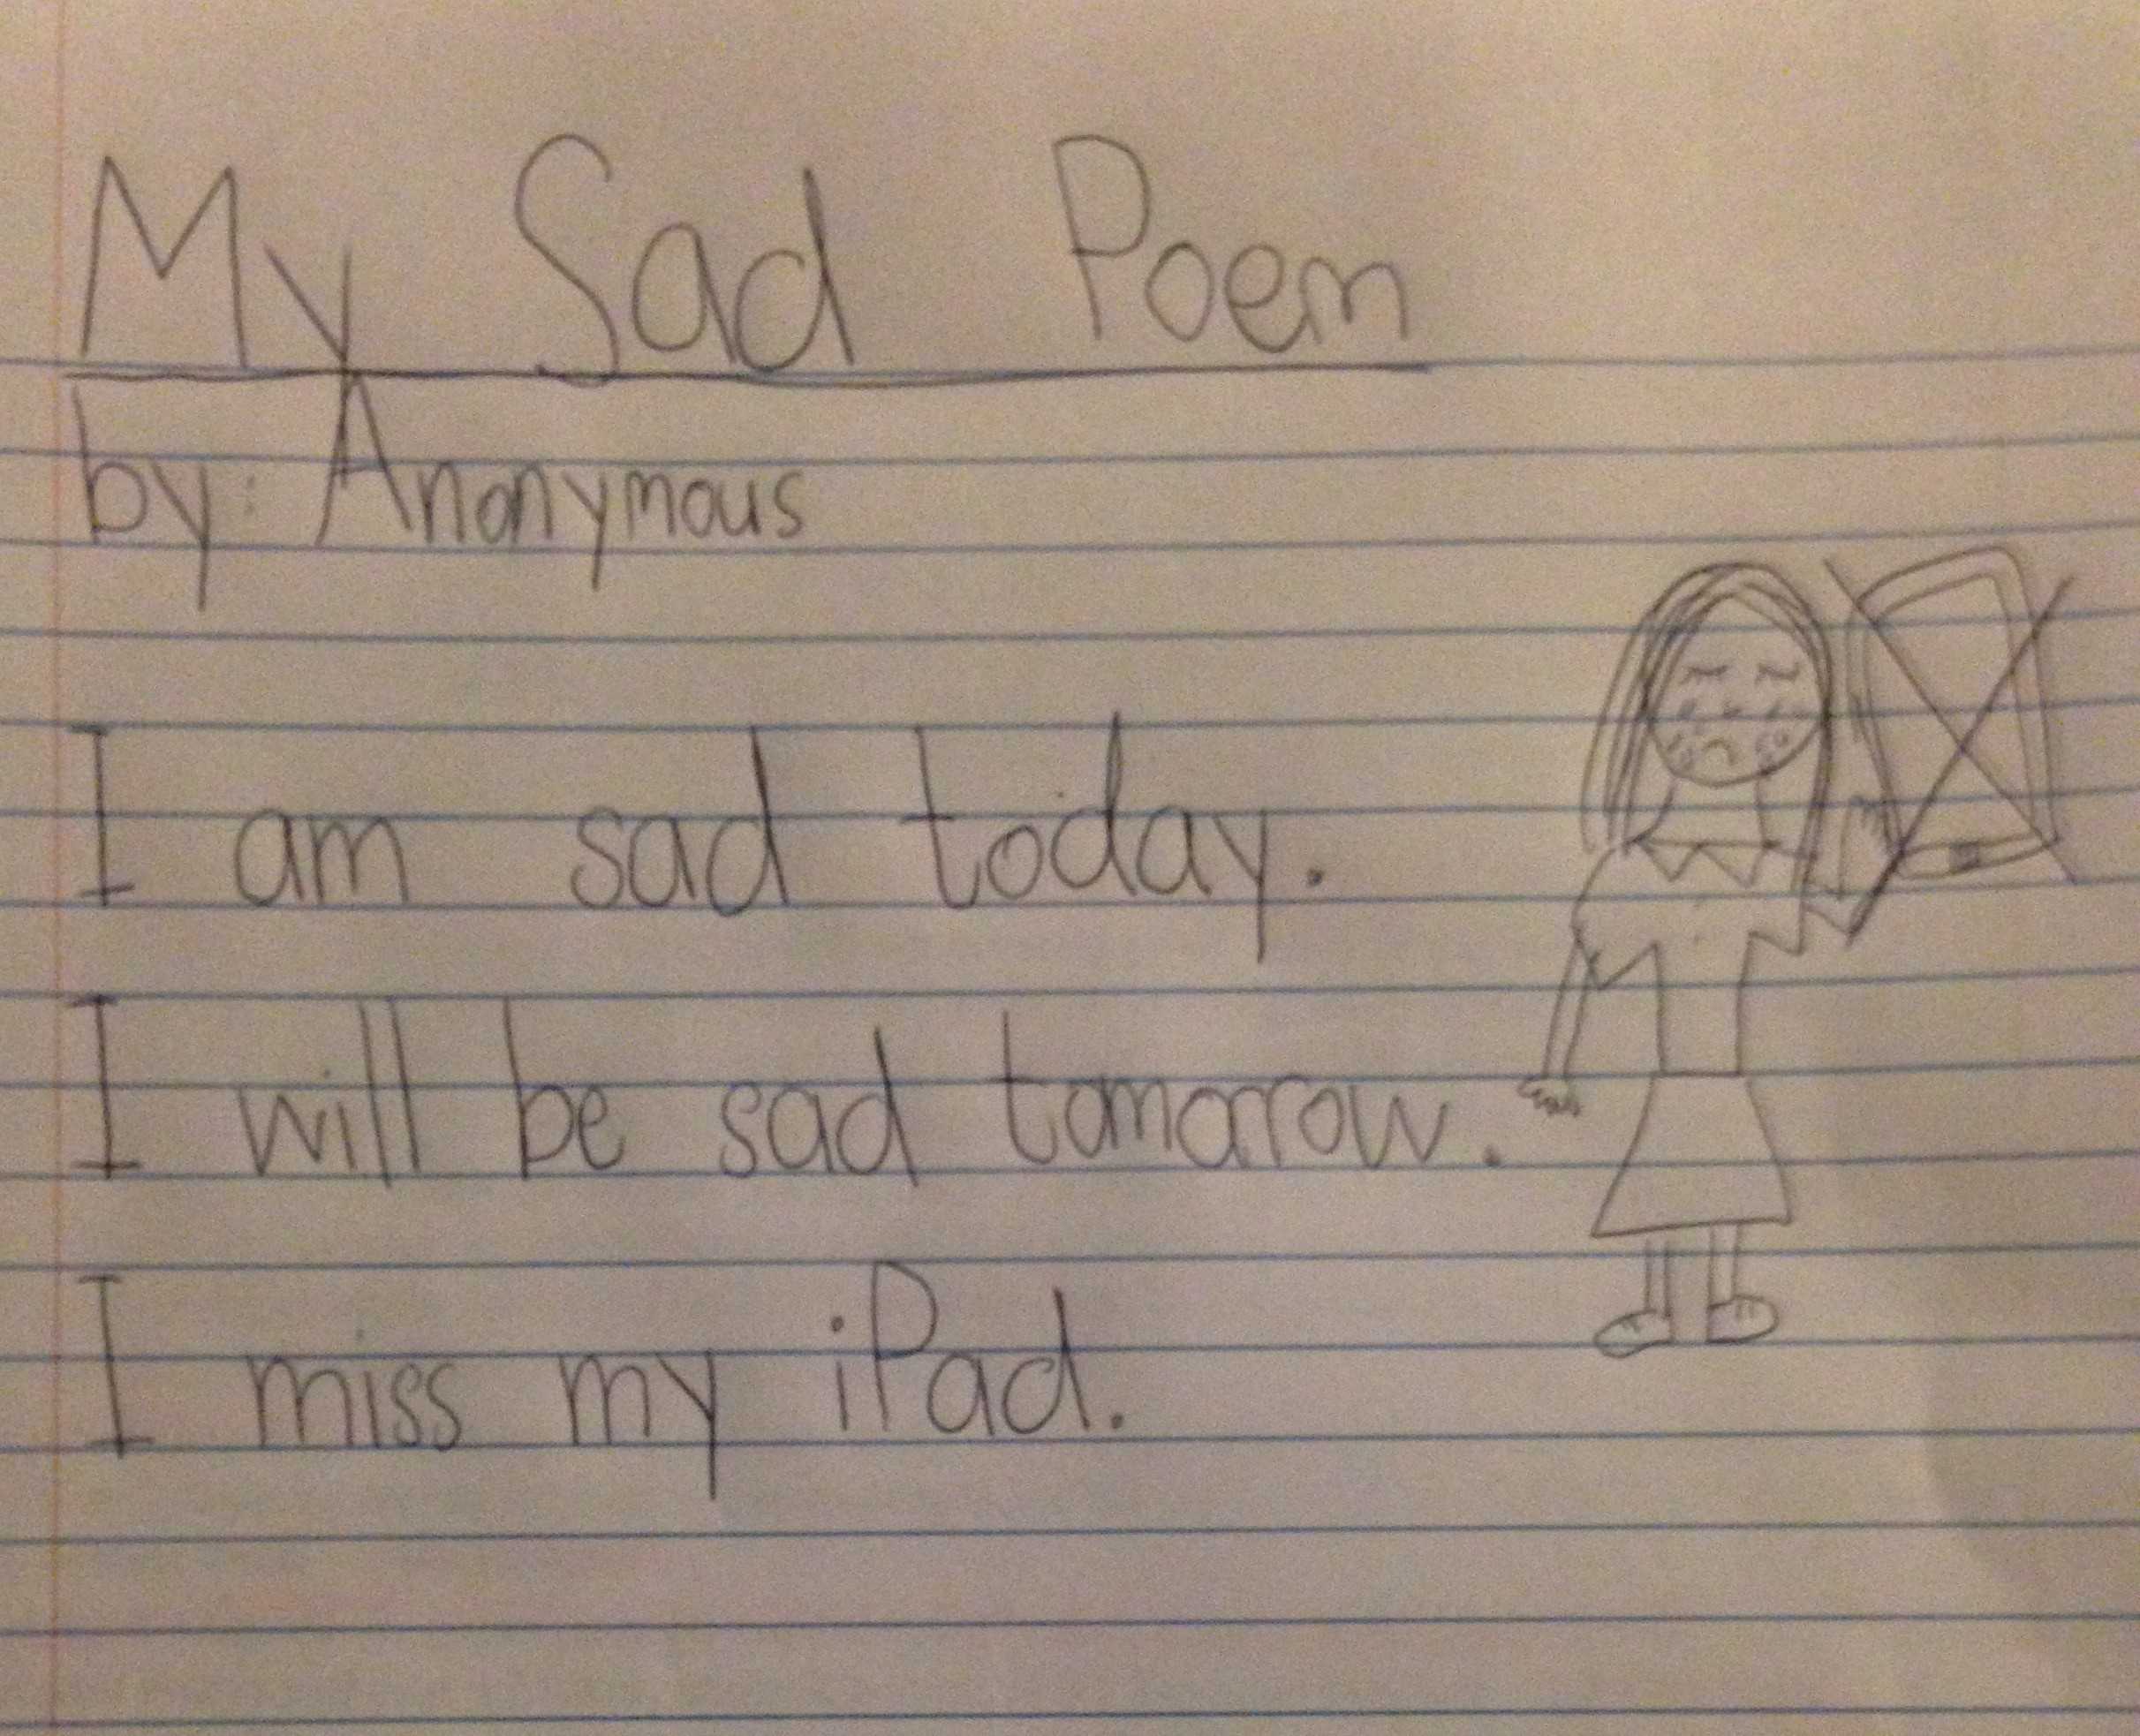 My Sad Poem
by: Anonymous
I am sad today.
I will be sad tomorrow.
I miss my iPad.